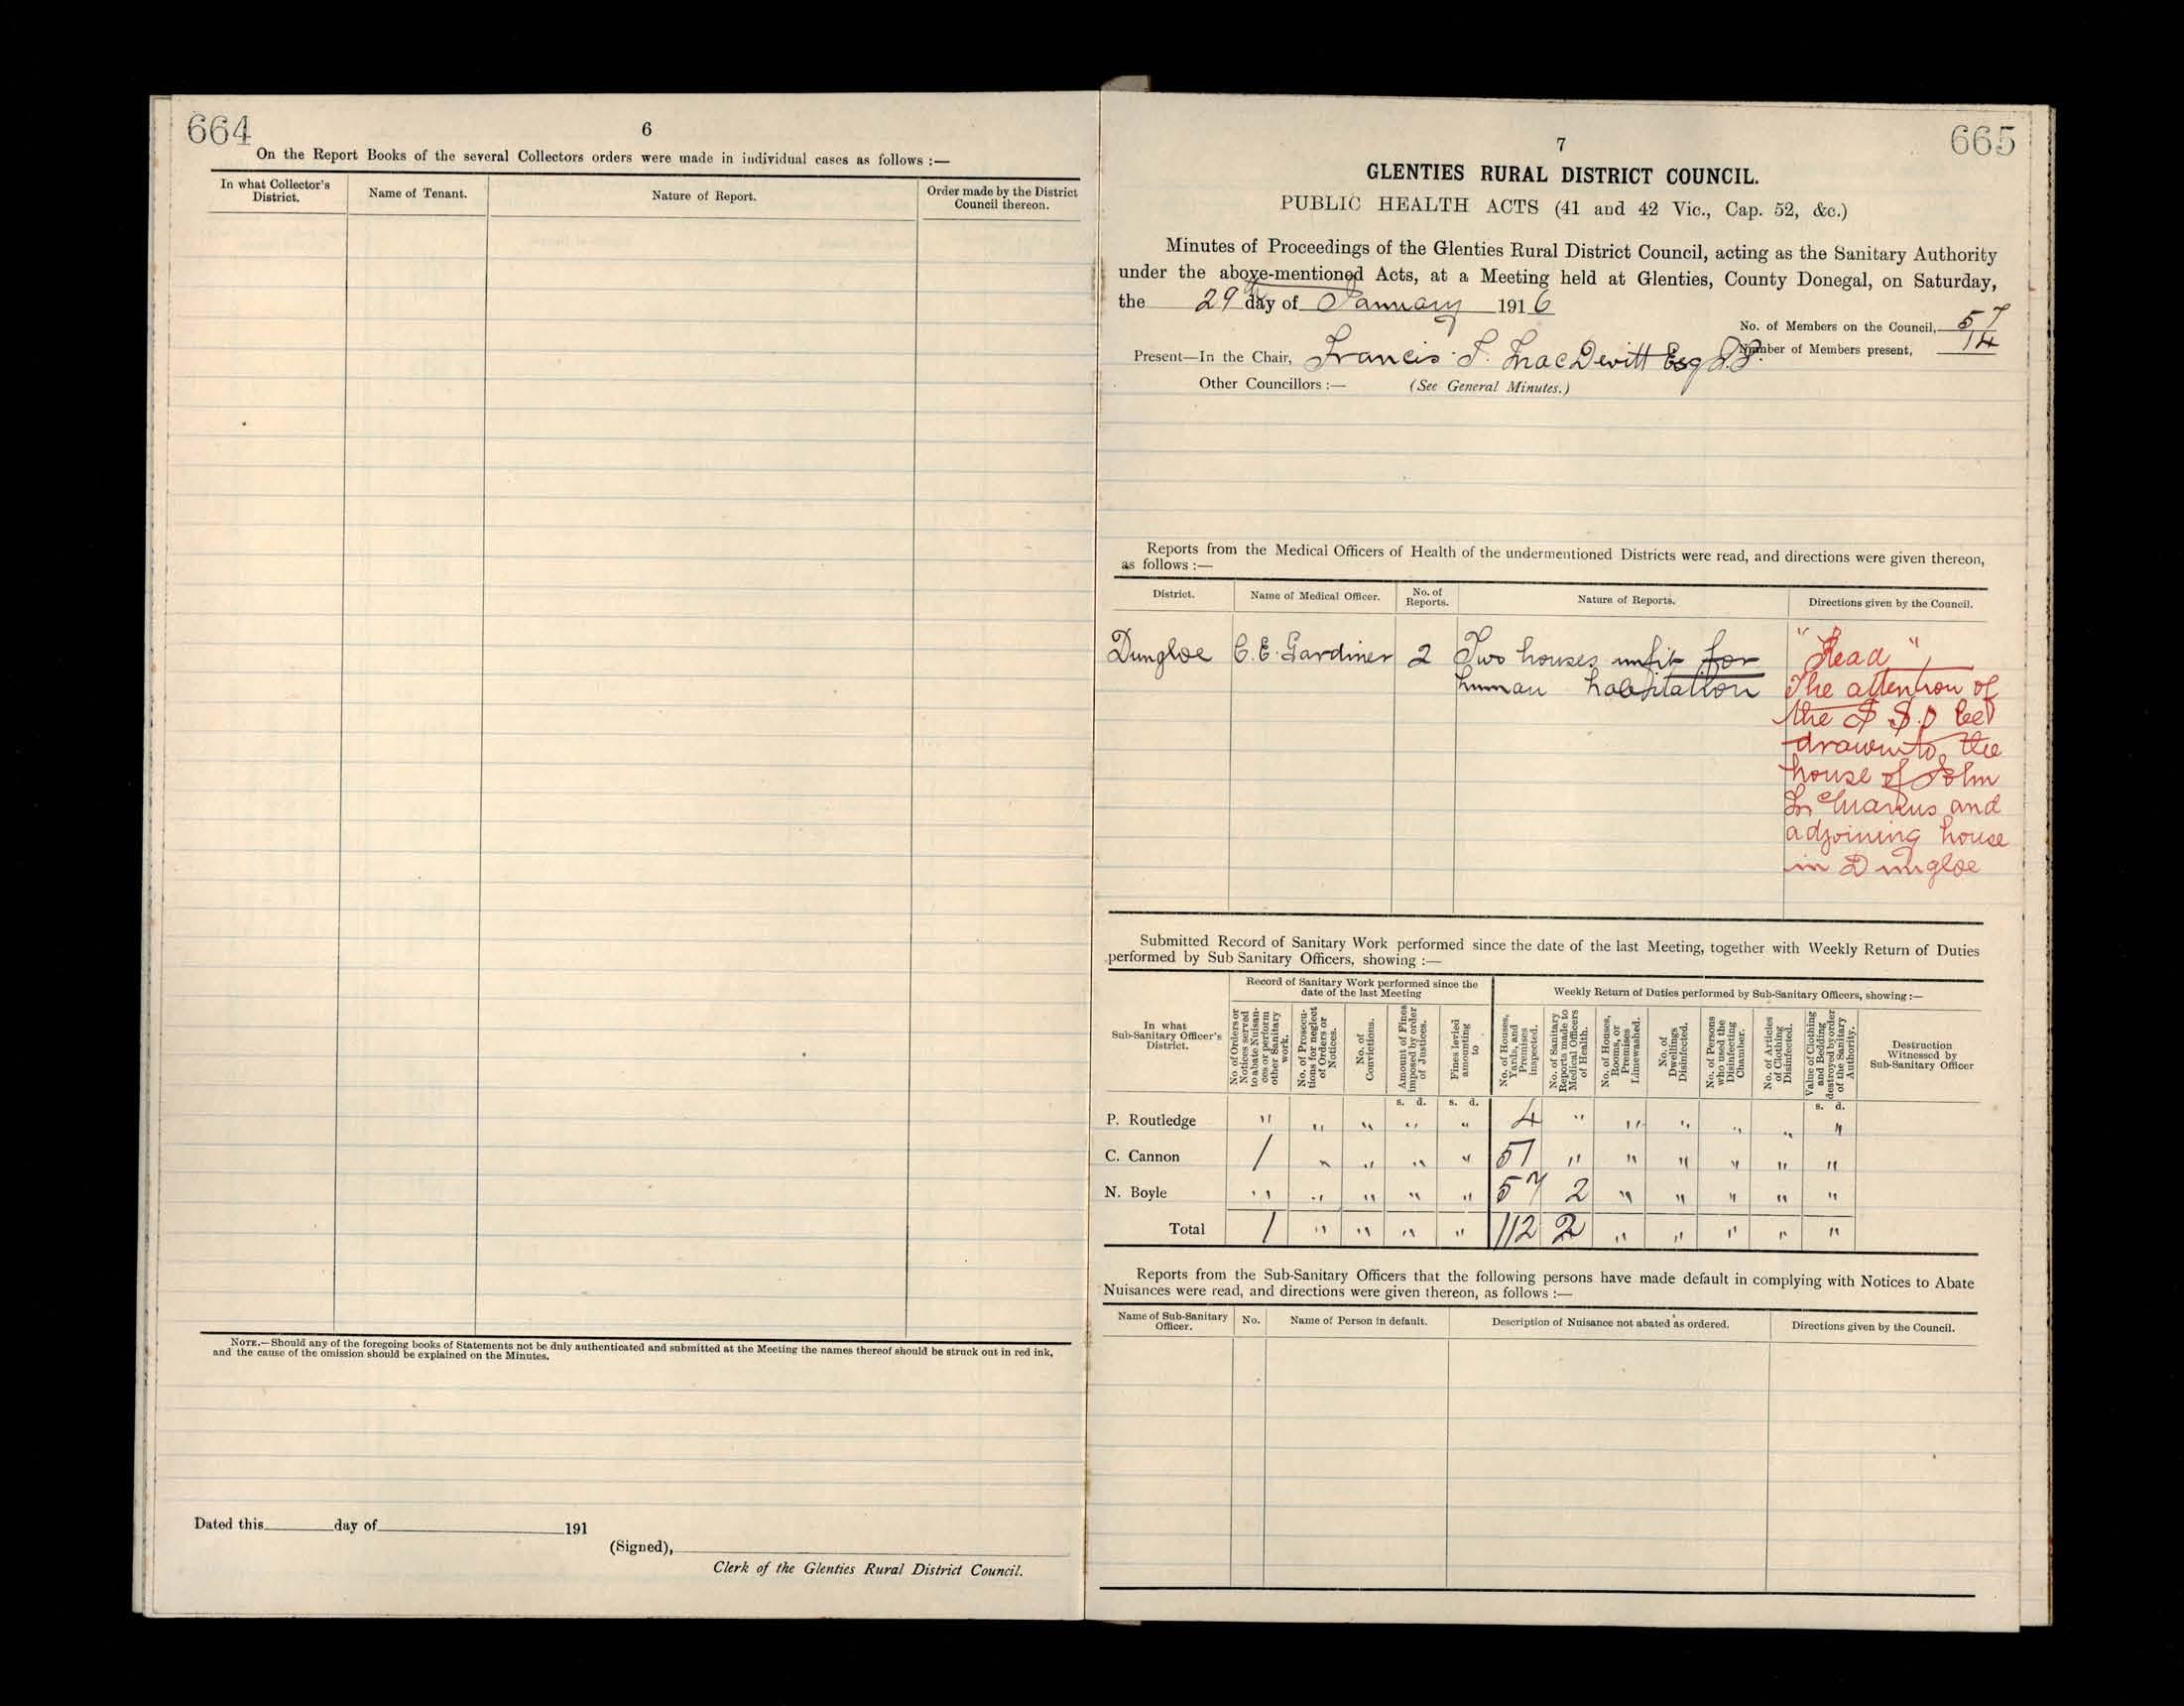 664
6
On the Report Books of the several Collectors orders were made in individual cases as follows :—
In what Collector's District.
Name of Tenant.
Nature of Report.
Order made by the District Council thereon.
NOTE.—Should any of the foregoing books of Statements not be duly authenticated and submitted at the Meeting the names thereof should be struck out in red ink,
and the cause of the omission should be explained on the Minutes.
Dated this day of 191
(Signed),
Clerk of the Glenties Rural District Council.
665
7
GLENTIES RURAL DISTRICT COUNCIL.
PUBLIC HEALTH ACTS (41 and 42 Vic., Cap. 52, &c.)
Minutes of Proceedings of the Glenties Rural District Council, acting as the Sanitary Authority
under the above-mentioned Acts, at a Meeting held at Glenties, County Donegal, on Saturday,
the 29 day of January 1916
No. of Members on the Council, 57
Number of Members present, 14
Present—In the Chair, Francis S. MacDevitt Esq J.P.
Other Councillors :— (See General Minutes.)
Reports from the Medical Officers of Health of the undermentioned Districts were read, and directions were given thereon,
as follows :—
District.
Name of Medical Officer.
No. of Reports.
Nature of Reports.
Directions given by the Council.
Dungloe C. E. Gardiner 2 Two houses unfit for
human habitation
"Read"
The attention of
the S.S.O be
drawn to the
house of John
and
adjoining house
in Dungloe
Submitted Record of Sanitary Work performed since the date of the last Meeting, together with Weekly Return of Duties
performed by Sub Sanitary Officers, showing :—
In what Sub-Sanitary Officer's District.
Record of Sanitary Work performed since the date of the last Meeting
Weekly Return of Duties performed by Sub-Sanitary Officers, showing :—
No of Orders or Notices served to abate Nuisances or perform other Sanitary work.
No. of Prosecutions for neglect of Orders or Notices.
No. of Convictions.
Amount of Fines imposed by order of Justices.
Fines levied amounting to
No. of Houses, Yards, and Premises inspected.
No. of Sanitary Reports made to Medical Officers of Health.
No. of Houses, Rooms, or Premises Limewashed.
No. of Dwellings Disinfected.
No. of Persons who used the Disinfecting Chamber.
No. of Articles of Clothing Disinfected.
Value of Clothing and Bedding destroyed by order of the Sanitary Authority.
Destruction Witnessed by Sub-Sanitary Officer
s. d. s. d. s. d.
P. Routledge " " " " " 4 " " " " " "
C. Cannon 1 " " " " 51 " " " " " "
N. Boyle " " " " " 57 2 " " " " "
Total 1 " " " " 112 2 " " " " "
Reports from the Sub-Sanitary Officers that the following persons have made default in complying with Notices to Abate
Nuisances were read, and directions were given thereon, as follows :—
Name of Sub-Sanitary Officer.
No.
Name of Person in default.
Description of Nuisance not abated as ordered.
Directions given by the Council.